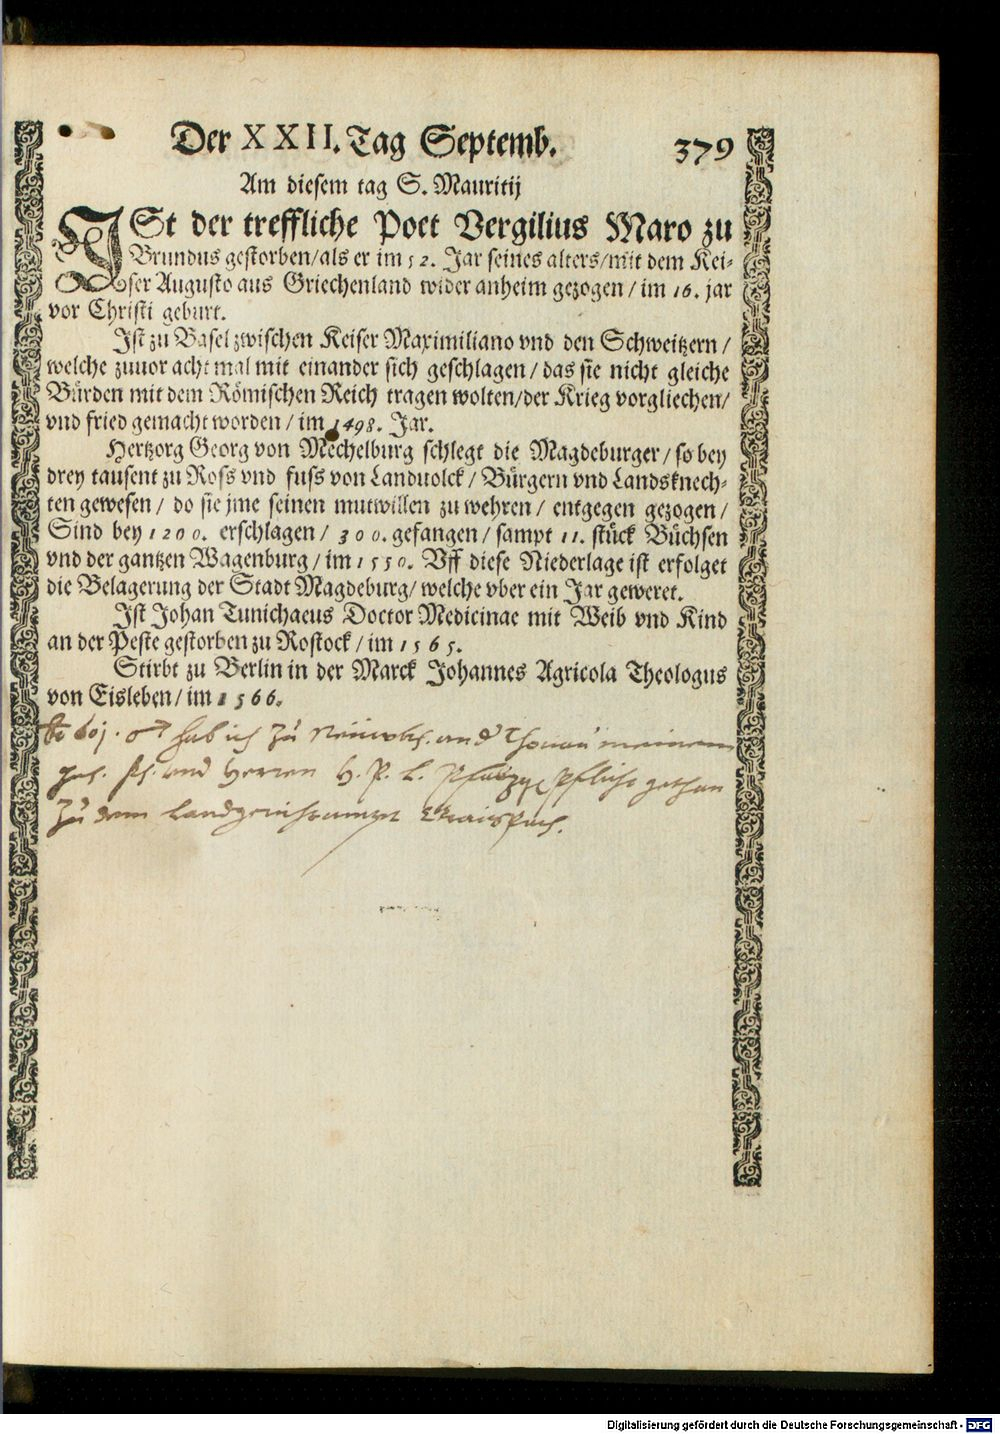 Der XXII. Tag Septemb. 379
Am diesem tag S. Mauritij
ISt der treffliche Poet Vergilius Maro zu
Brundus gestorben/als er im 52. Jar seines alters/mit dem Kei-
ser Augusto aus Griechenland wider anheim gezogen / im 16. jar
vor Christi geburt.
Ist zu Basel zwischen Keiser Maximiliano vnd den Schweitzern /
welche zuuor acht mal mit einander sich geschlagen / das sie nicht gleiche
Bürden mit dem Römischen Reich tragen wolten/der Krieg vorgliechen/
vnd fried gemacht worden / im 1498. Jar.
Hertzog Georg von Mechelburg schlegt die Magdeburger / so bey
drey tausent zu Ross vnd fuss von Landuolck / Bürgern vnd Landsknech-
ten gewesen / do sie jme seinen mutwillen zu wehren / entgegen gezogen /
Sind bey 1200. erschlagen / 300. gefangen / sampt 11. stück Büchsen
vnd der gantzen Wagenburg / im 1550. Vff diese Niederlage ist erfolget
die Belagerung der Stadt Magdeburg / welche vber ein Jar geweret.
Ist Johan Tunichaeus Doctor Medicinae mit Weib vnd Kind
an der Peste gestorben zu Rostock / im 1565.
Stirbt zu Berlin in der Marck Johannes Agricola Theologus
von Eisleben / im 1566.
hab ich zu meinem
und Herren H. P. L. Pflicht gethan
zu dem
Digitalisierung gefördert durch die Deutsche Forschungsgemeinschaft - DFG